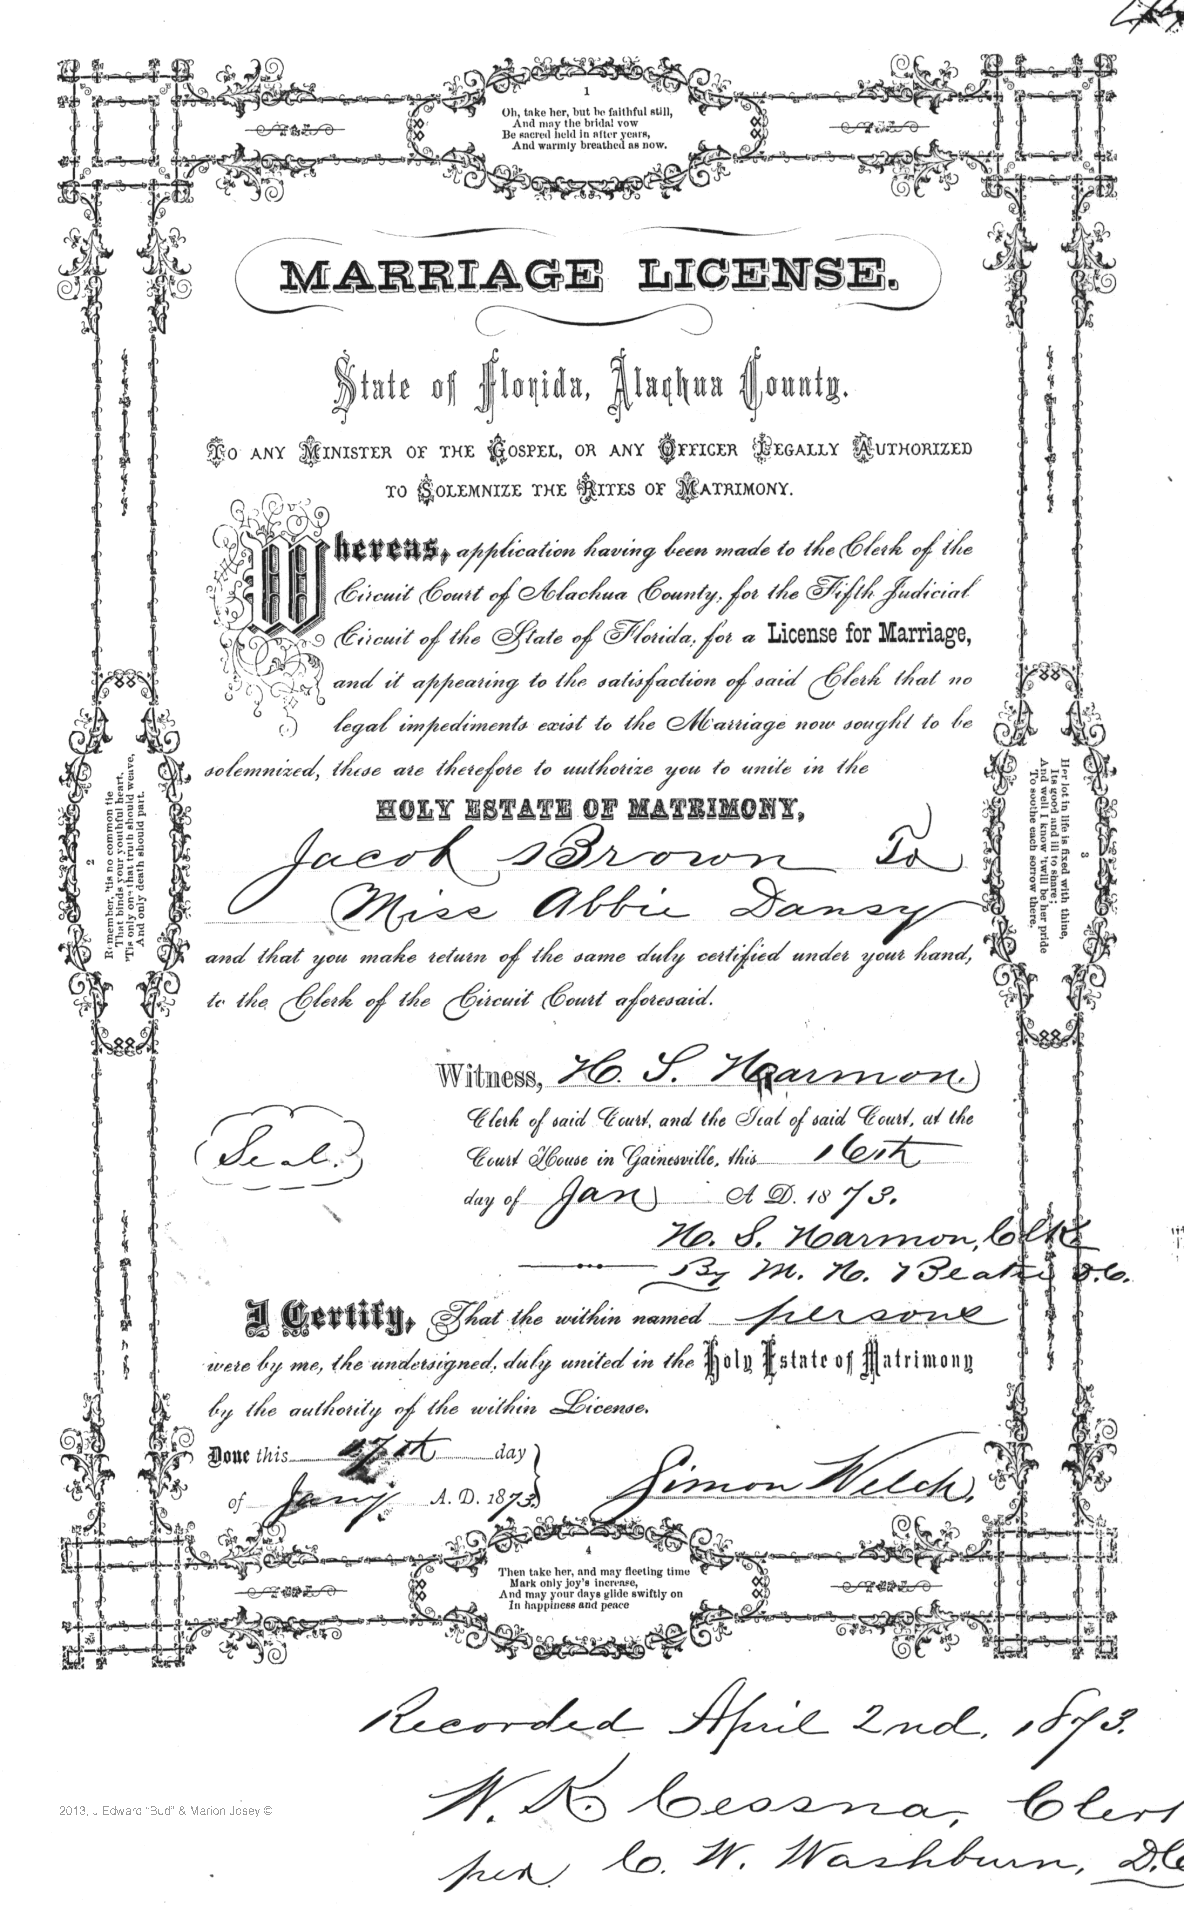 1
Oh, take her, but be faithful still,
And may the bridal vow
Be sacred held in after years,
And warmly breathed as now.
MARRIAGE LICENSE.
State of Florida, Alachua County.
To any Minister of the Gospel, or any Officer Legally Authorized
to Solemnize the Rites of Matrimony.
Whereas, application having been made to the Clerk of the
Circuit Court of Alachua County, for the Fifth Judicial
Circuit of the State of Florida, for a License for Marriage,
and it appearing to the satisfaction of said Clerk that no
legal impediments exist to the Marriage now sought to be
solemnized, these are therefore to authorize you to unite in the
HOLY ESTATE OF MATRIMONY,
Jacob Brown To
Miss Abbie Dansy
and that you make return of the same duly certified under your hand,
to the Clerk of the Circuit Court aforesaid.
2
Remember, 'tis no common tie
That binds your youthful heart,
'Tis only one that truth should weave,
And only death should part.
3
Her lot in life is fixed with thine,
Its good and ill to share;
And well I know 'twill be her pride
To soothe each sorrow there.
Witness, H. S. Harmon
Clerk of said Court, and the Seal of said Court, at the
Seal.
Court House in Gainesville, this 16th
day of Jan A D. 1873.
H. S. Harmon, Clk
By M. H. D.C.
I Certify, That the within named persons
were by me, the undersigned, duly united in the Holy Estate of Matrimony
by the authority of the within License.
Done this day
of Jany A. D. 1873
Simon Welch.
4
Then take her, and may fleeting time
Mark only joy's increase,
And may your days glide swiftly on
In happiness and peace
Recorded April 2nd. 1873.
W. K. Cessna, Clerk
per C. W. Washburn, D.C
2013, J Edward "Bud" & Marion Josey ©